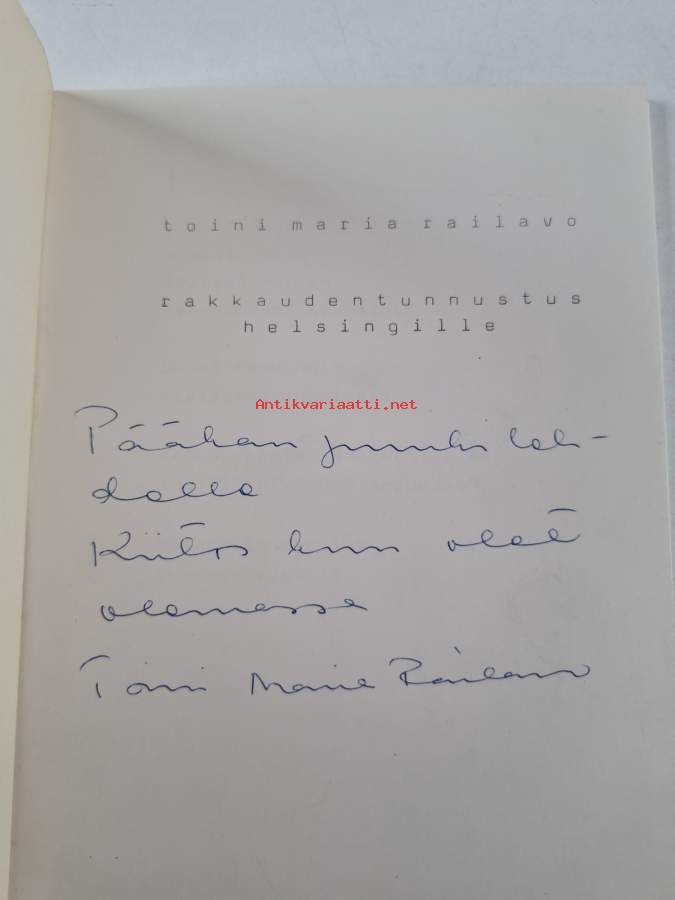 toini maria railavo
rakkaudentunnustus
helsingille
Antikvariaatti.net
Päähan leh-
dolla
Kiitos kun olet
olemassa
Toini Maria Railavo